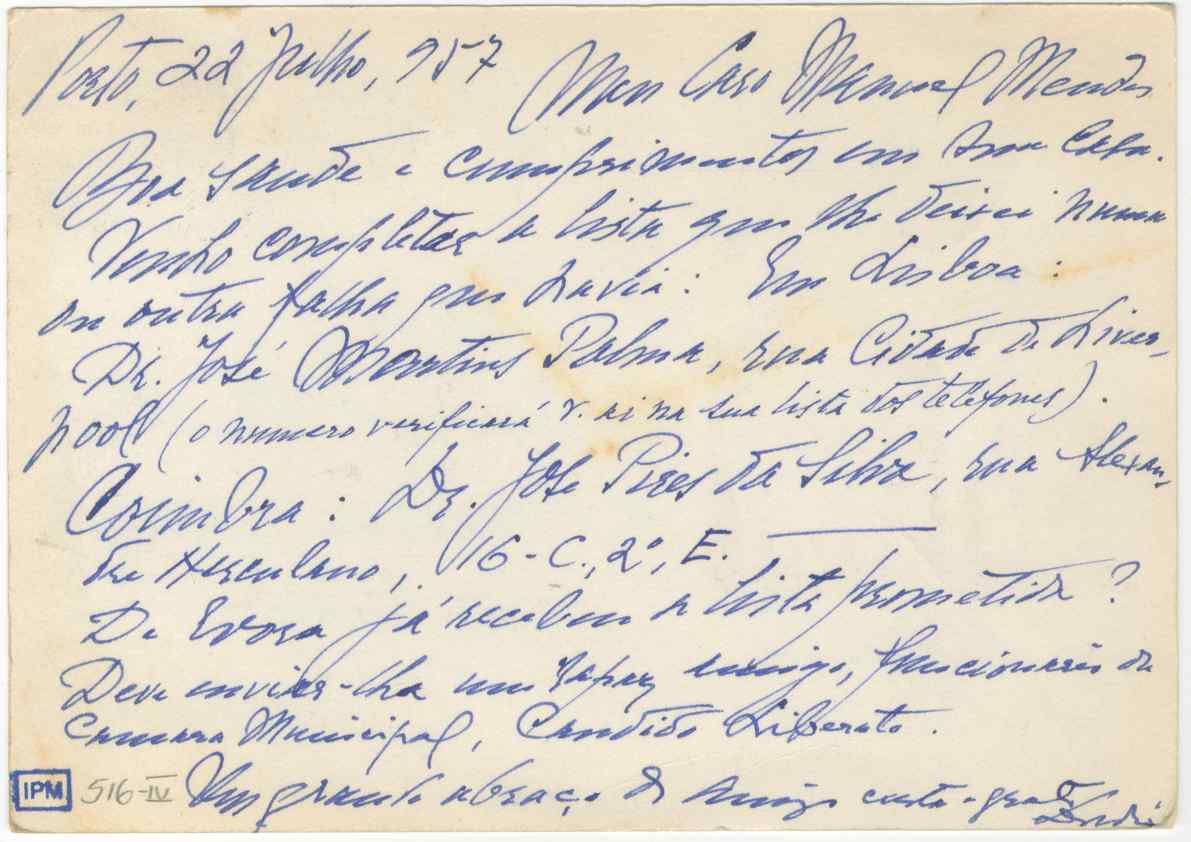 Porto, 22 Julho, 957
Meu Caro Manuel Mendes
Boa saude e cumprimentos em sua Casa.
Venho completar a lista que lhe deixei numa
ou outra falha que havia: Em Lisboa:
Dr. José Martins Palma, rua Cidade de Liver-
pool (o numero verificará V. ai na sua lista dos telefones).
Coimbra: Dr. José Pires da Silva, rua Alexan-
dre Herculano, 16-C., 2º, E.
De Evora já recebeu a lista prometida?
Deve enviar-lha um rapaz amigo, funcionario da
Camara Municipal, Candido Liberato.
Um grande abraço do amigo certo e grato
IPM 516-IV